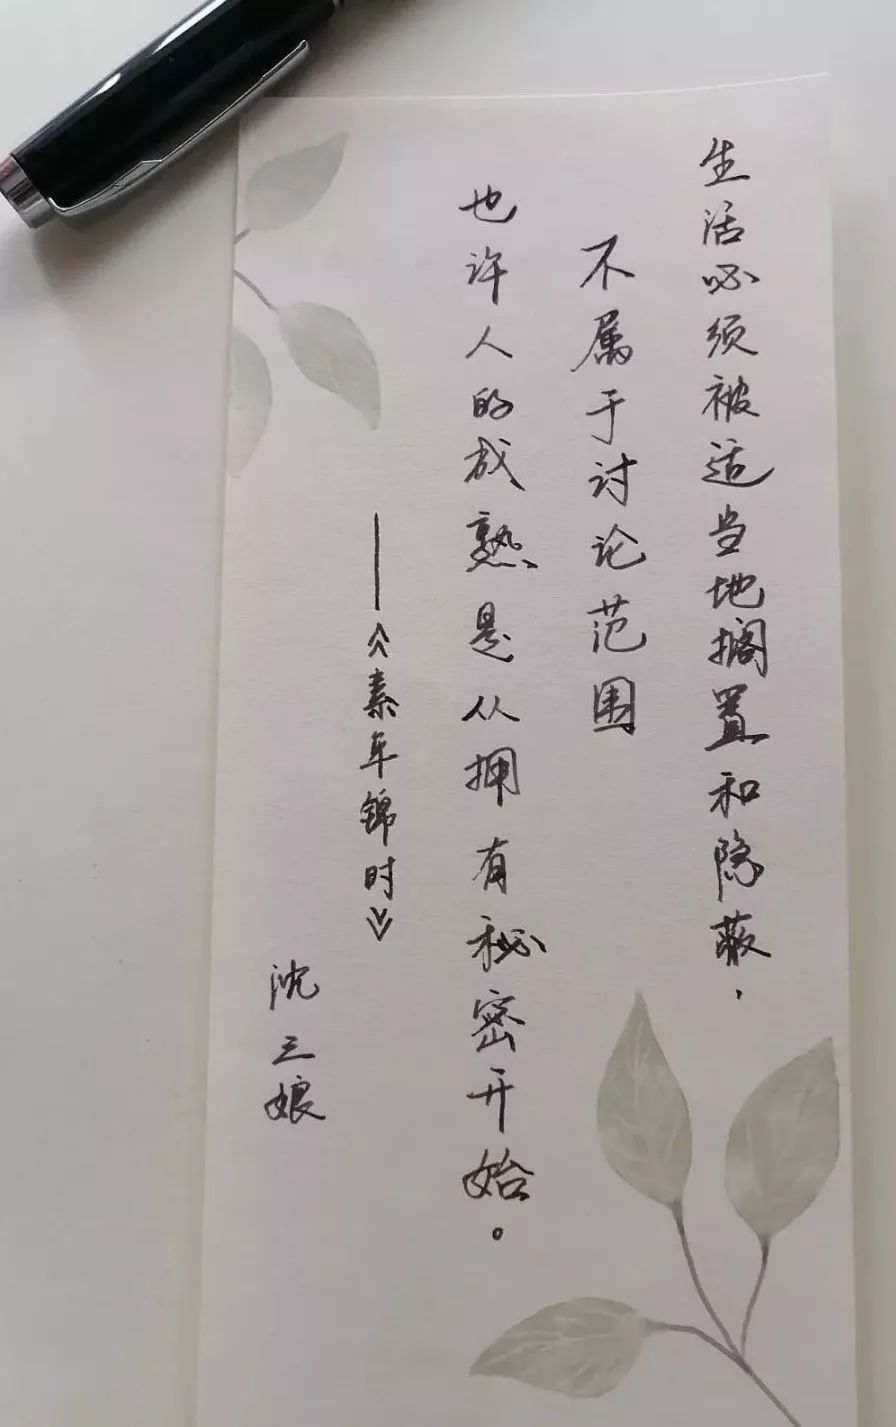 生活必须被适当地搁置和隐蔽，
不属于讨论范围
也许人的成熟是从拥有秘密开始。
——《素年锦时》
沈三娘